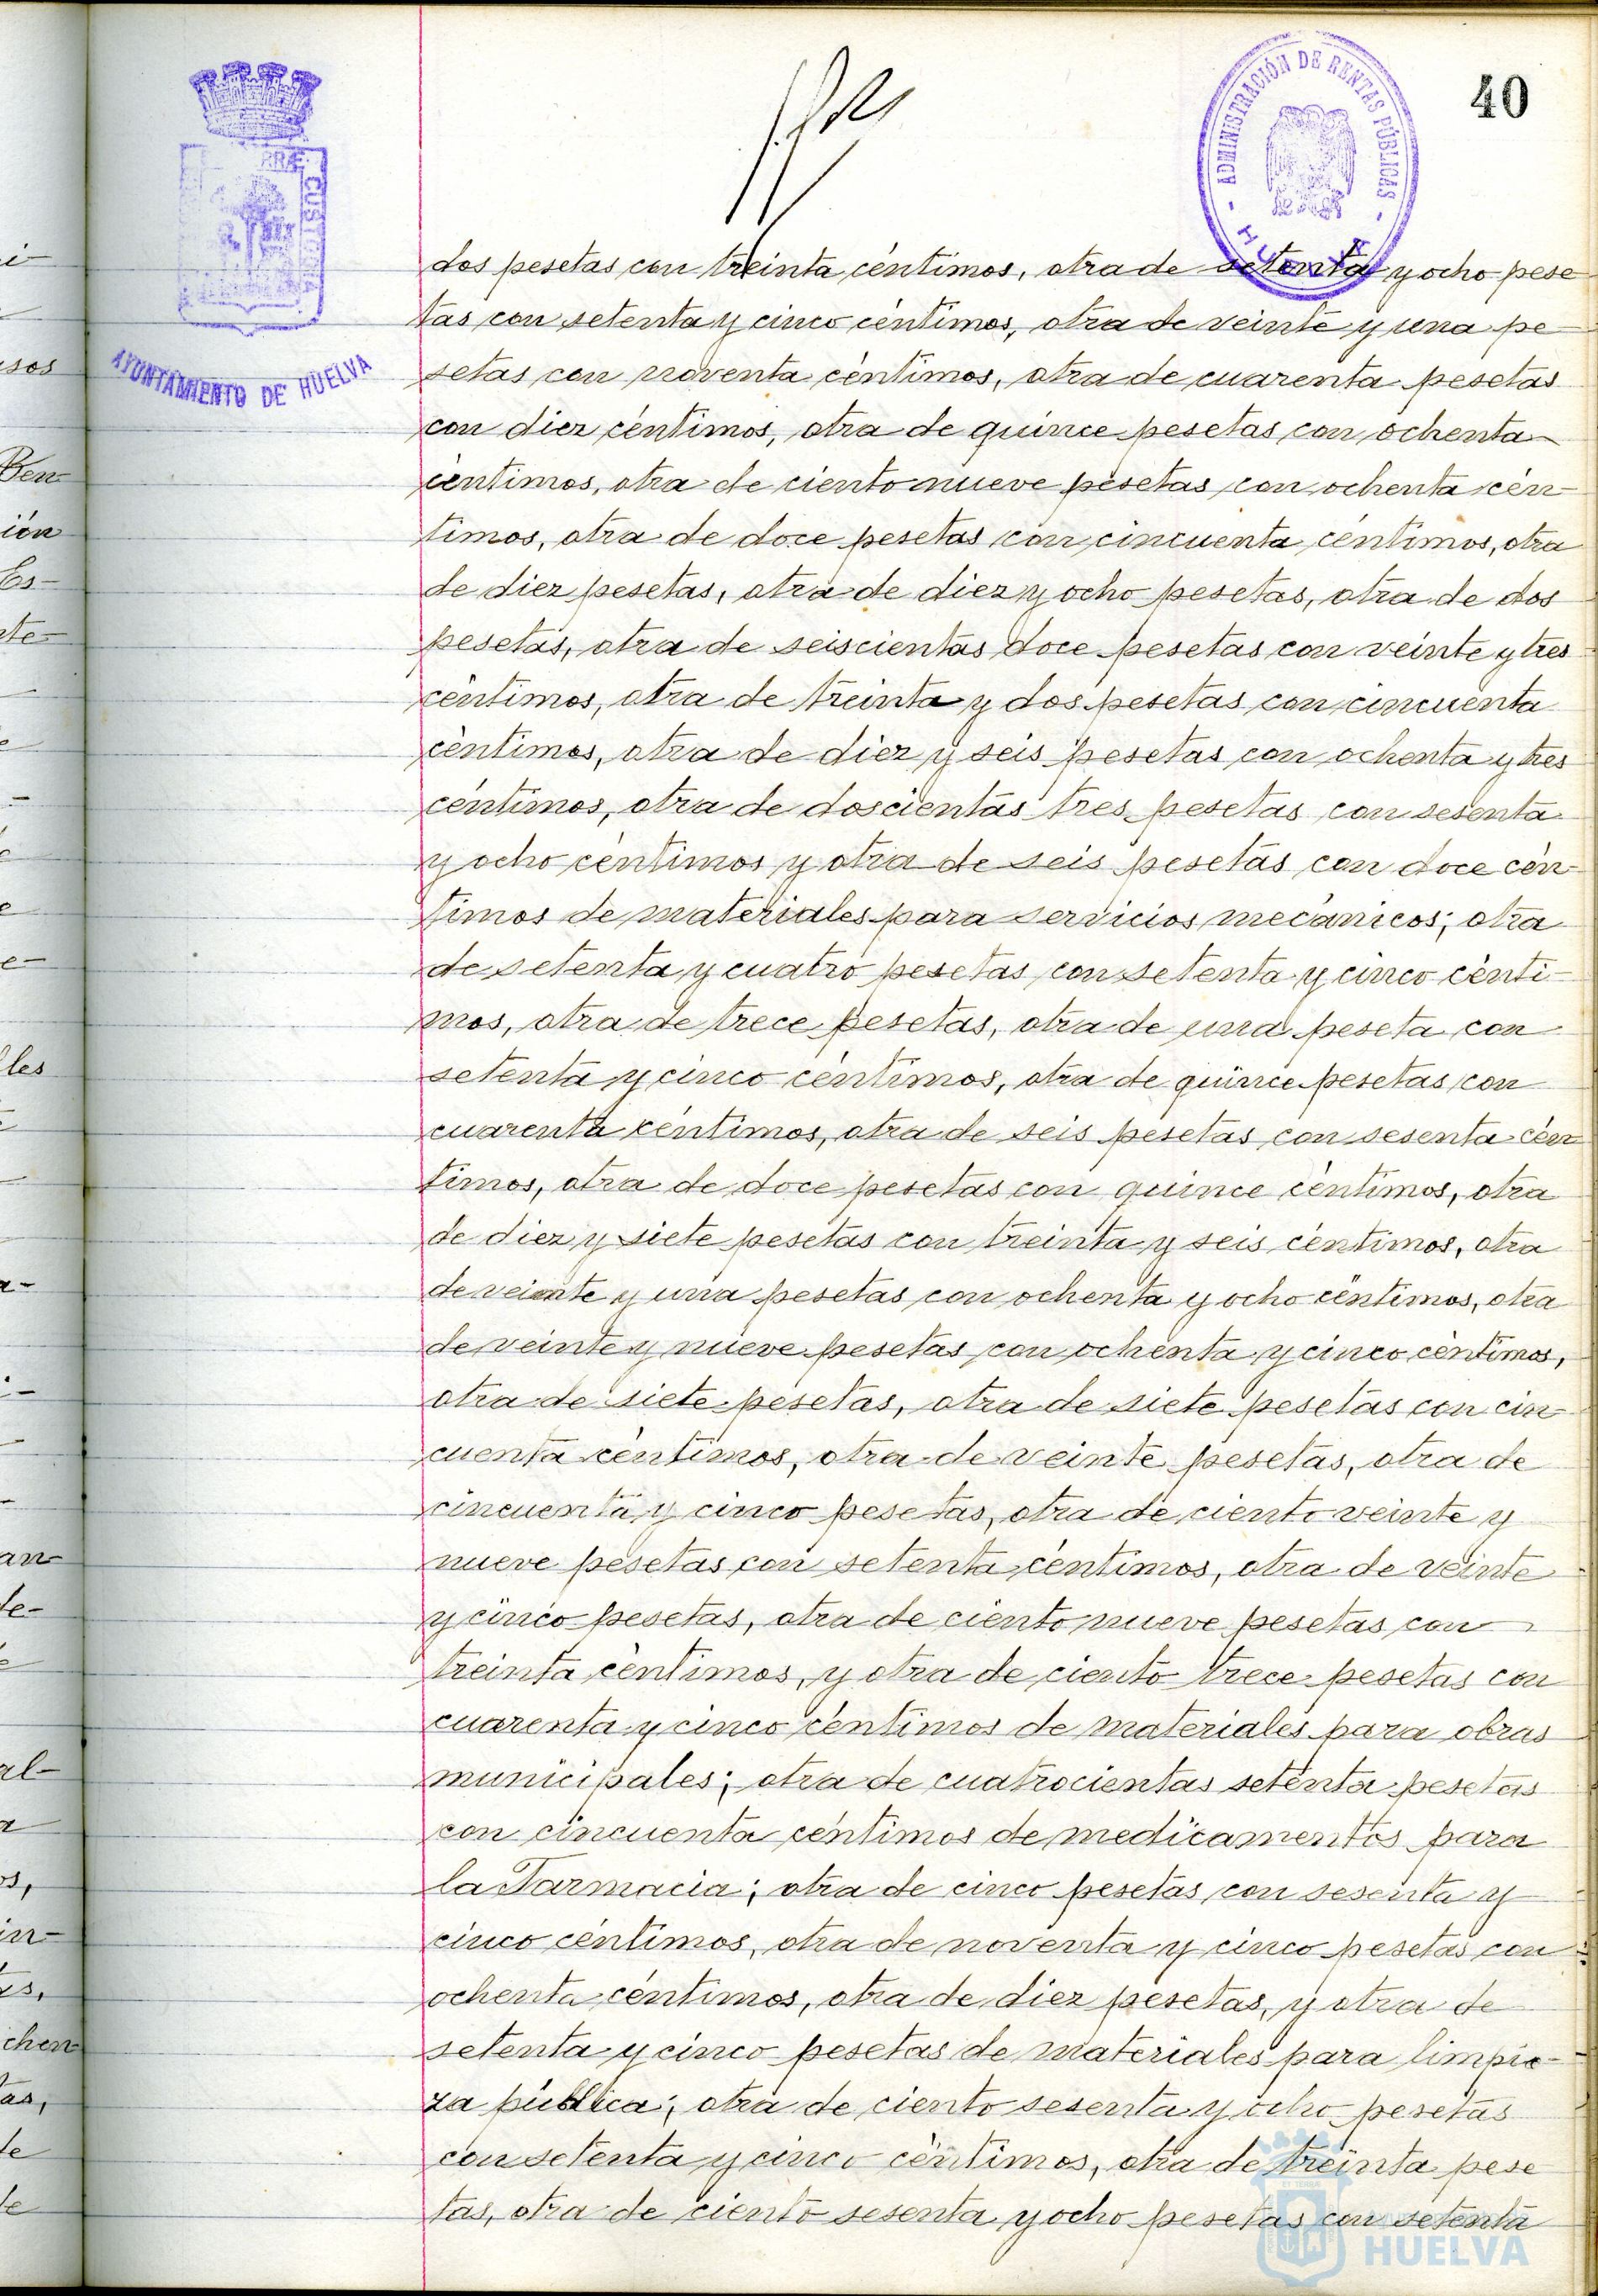 40
ADMINISTRACIÓN DE RENTAS PÚBLICAS
HUELVA
RRÆ CUSTODIA
AYUNTAMIENTO DE HUELVA
dos pesetas con treinta céntimos, otra de setenta y ocho pese
tas con setenta y cinco céntimos, otra de veinte y una pe-
setas con noventa céntimos, otra de cuarenta pesetas
con diez céntimos, otra de quince pesetas con ochenta
céntimos, otra de ciento nueve pesetas con ochenta cén-
timos, otra de doce pesetas con cincuenta céntimos, otra
de diez pesetas, otra de diez y ocho pesetas, otra de dos
pesetas, otra de seiscientas doce pesetas con veinte y tres
céntimos, otra de treinta y dos pesetas con cincuenta
céntimos, otra de diez y seis pesetas con ochenta y tres
céntimos, otra de doscientas tres pesetas con sesenta
y ocho céntimos y otra de seis pesetas con doce cén-
timos de materiales para servicios mecánicos; otra
de setenta y cuatro pesetas con setenta y cinco cénti-
mos, otra de trece pesetas, otra de una peseta con
setenta y cinco céntimos, otra de quince pesetas con
cuarenta céntimos, otra de seis pesetas con sesenta cén
timos, otra de doce pesetas con quince céntimos, otra
de diez y siete pesetas con treinta y seis céntimos, otra
de veinte y una pesetas con ochenta y ocho céntimos, otra
de veinte y nueve pesetas con ochenta y cinco céntimos,
otra de siete pesetas, otra de siete pesetas con cin-
cuenta céntimos, otra de veinte pesetas, otra de
cincuenta y cinco pesetas, otra de ciento veinte y
nueve pesetas con setenta céntimos, otra de veinte
y cinco pesetas, otra de ciento nueve pesetas con
treinta céntimos, y otra de ciento trece pesetas con
cuarenta y cinco céntimos de materiales para obras
municipales; otra de cuatrocientas setenta pesetas
con cincuenta céntimos de medicamentos para
la Farmacia; otra de cinco pesetas con sesenta y
cinco céntimos, otra de noventa y cinco pesetas con
ochenta céntimos, otra de diez pesetas, y otra de
setenta y cinco pesetas de materiales para limpie-
za pública; otra de ciento sesenta y ocho pesetas
con setenta y cinco céntimos, otra de treinta pese
tas, otra de ciento sesenta y ocho pesetas con setenta
HUELVA